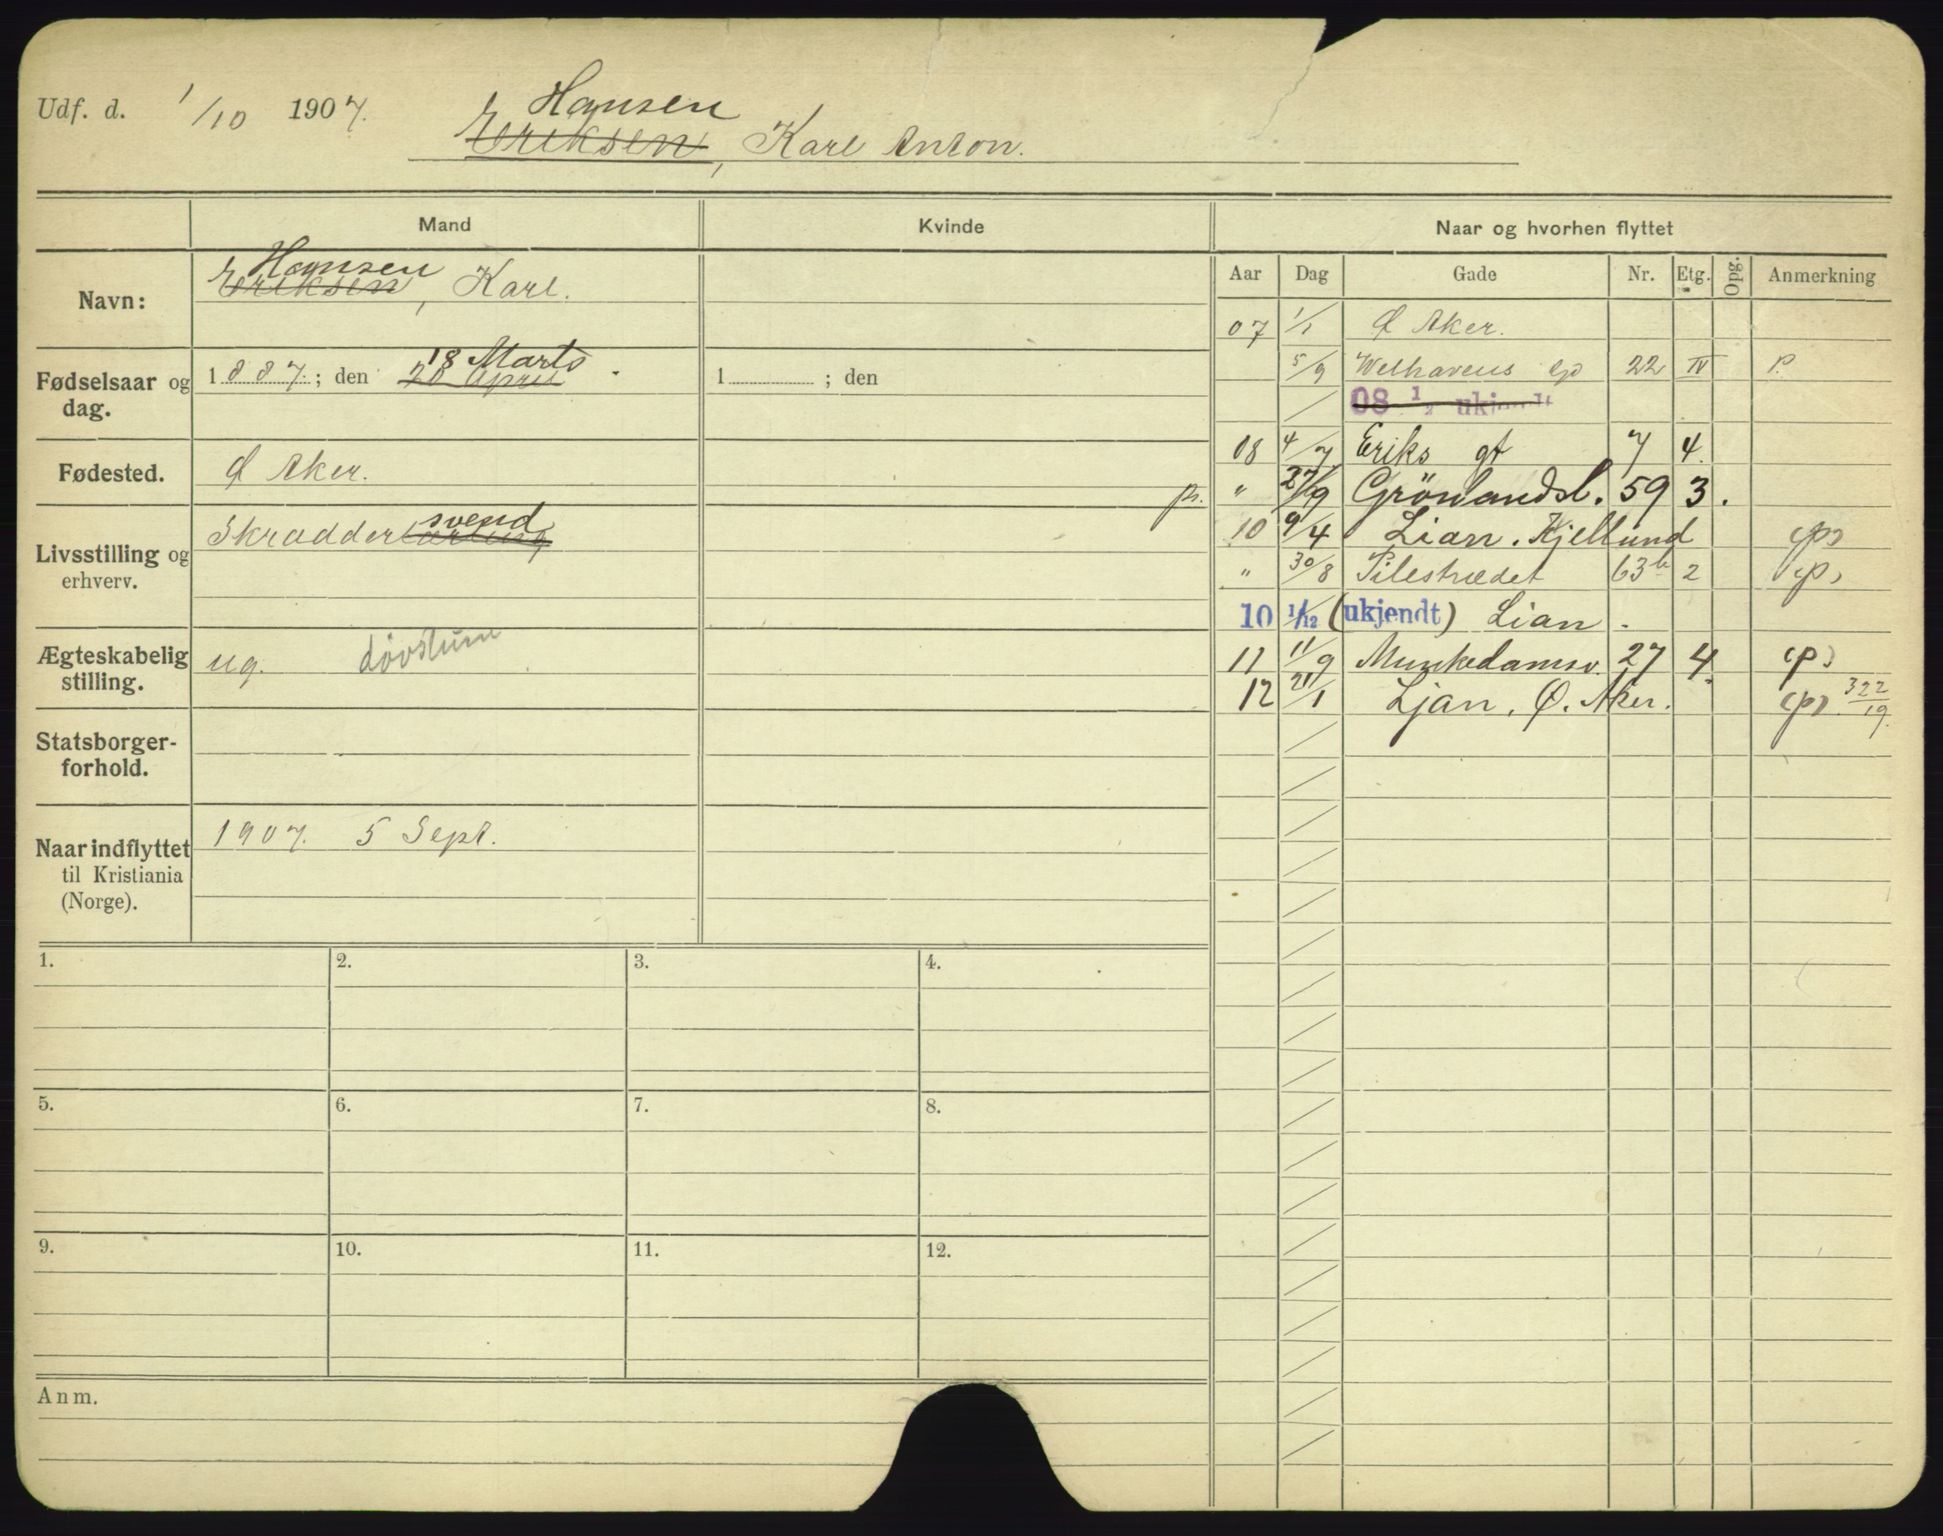 Udf. d. 1/10 1907.
Hansen
Eriksen, Karl Anton.
Mand Kvinde Naar og hvorhen flyttet
Aar Dag Gade Nr. Etg. Opg. Anmerkning
Navn:
Hansen
Eriksen, Karl.
Fødselsaar og dag.
18 Marts
1887.; den 20 April
1 ; den
Fødested.
Ø Aker.
Livsstilling og erhverv.
svend
Skrædderlærling
p.
Ægteskabelig stilling.
ug. døvstum
Statsborger-
forhold.
Naar indflyttet
til Kristiania
(Norge).
1907. 5 Sept.
07 1/1 Ø Aker.
5/9 Welhavens gd 22 IV P.
08 1/2 ukjendt
08 4/7 Eriks gt 7 4.
" 27/9 Grönlandsl. 59 3.
10 9/4 Lian. Kjellund (p)
" 30/8 Pilestrædet 63b 2 (p)
10 1/12 (ukjendt) Lian.
11 11/9 Munkedamsv. 27 4. (p)
12 21/1 Ljan, Ø. Aker. (p) 322/19.
1. 2. 3. 4.
5. 6. 7. 8.
9. 10. 11. 12.
Anm.